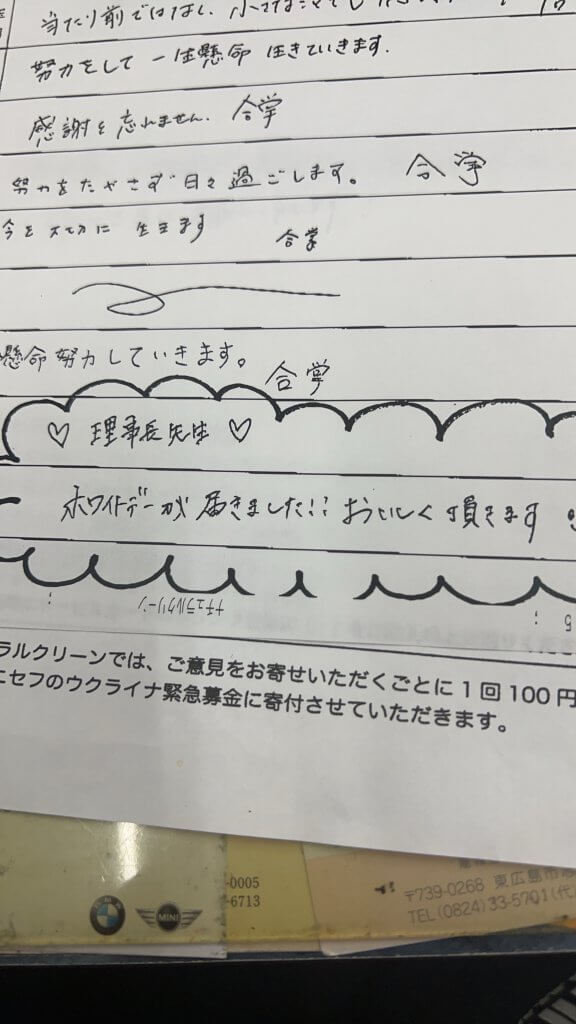 当たり前ではなし、小さなことでも
努力をして 一生懸命 生きていきます.
感謝を忘れません. 合掌
努力をたやさず 日々過ごします。 合掌
今を大切に 生きます 合掌
懸命努力していきます。 合掌
♡ 理事長先生 ♡
ホワイトデーが届きました!! おいしく頂きます
ナチュラルクリーン
ラルクリーンでは、ご意見をお寄せいただくごとに1回100円
ニセフのウクライナ緊急募金に寄付させていただきます。
-0005
-6713
BMW MINI
〒739-0268 東広島市志
TEL(0824)33-5701(代)